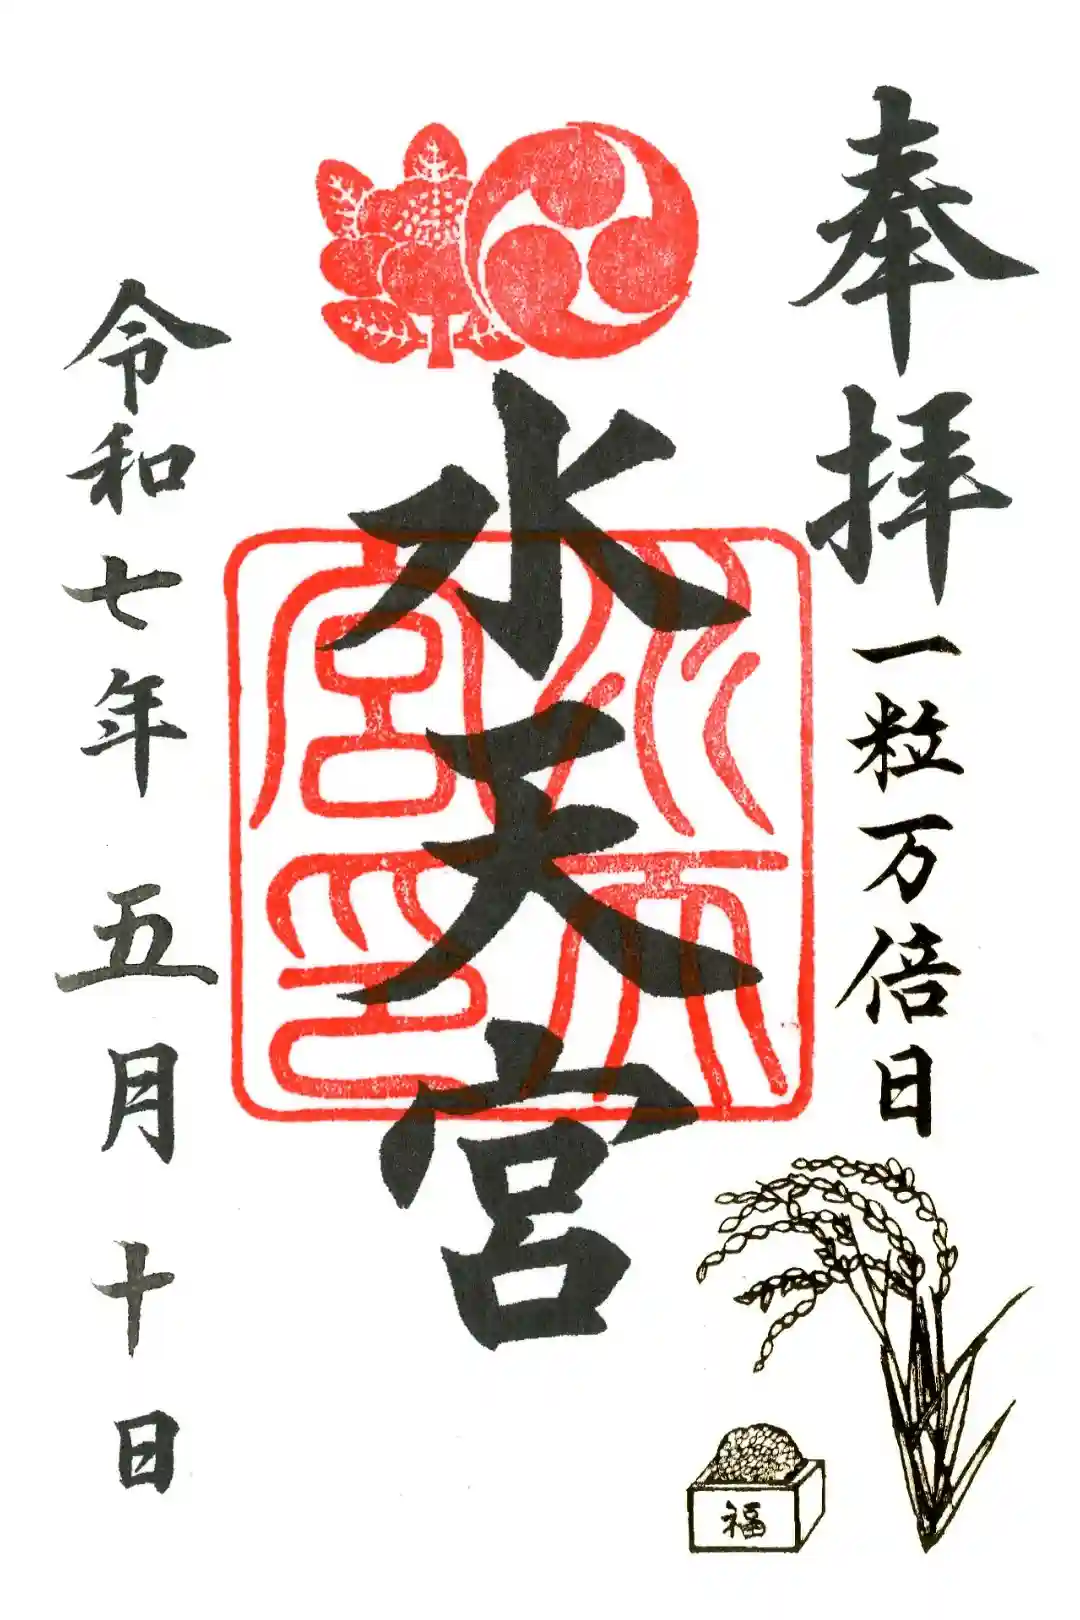 奉拝
一粒万倍日
福
水天宮
水天宮印
令和七年 五月 十日